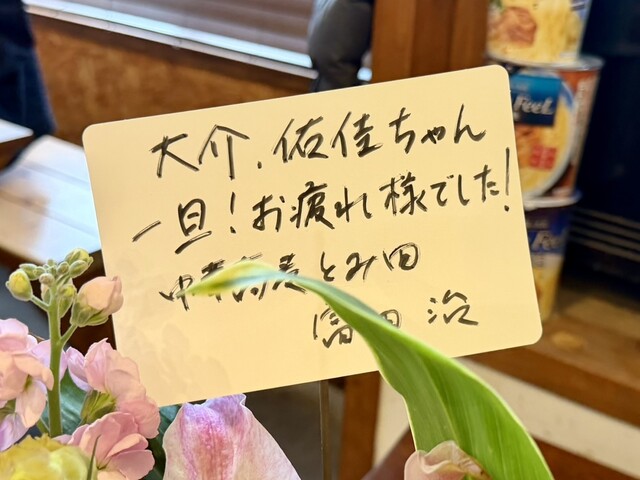 大介、佑佳ちゃん
一旦！お疲れ様でした！
中華蕎麦とみ田
富田 治
Feel
Feel